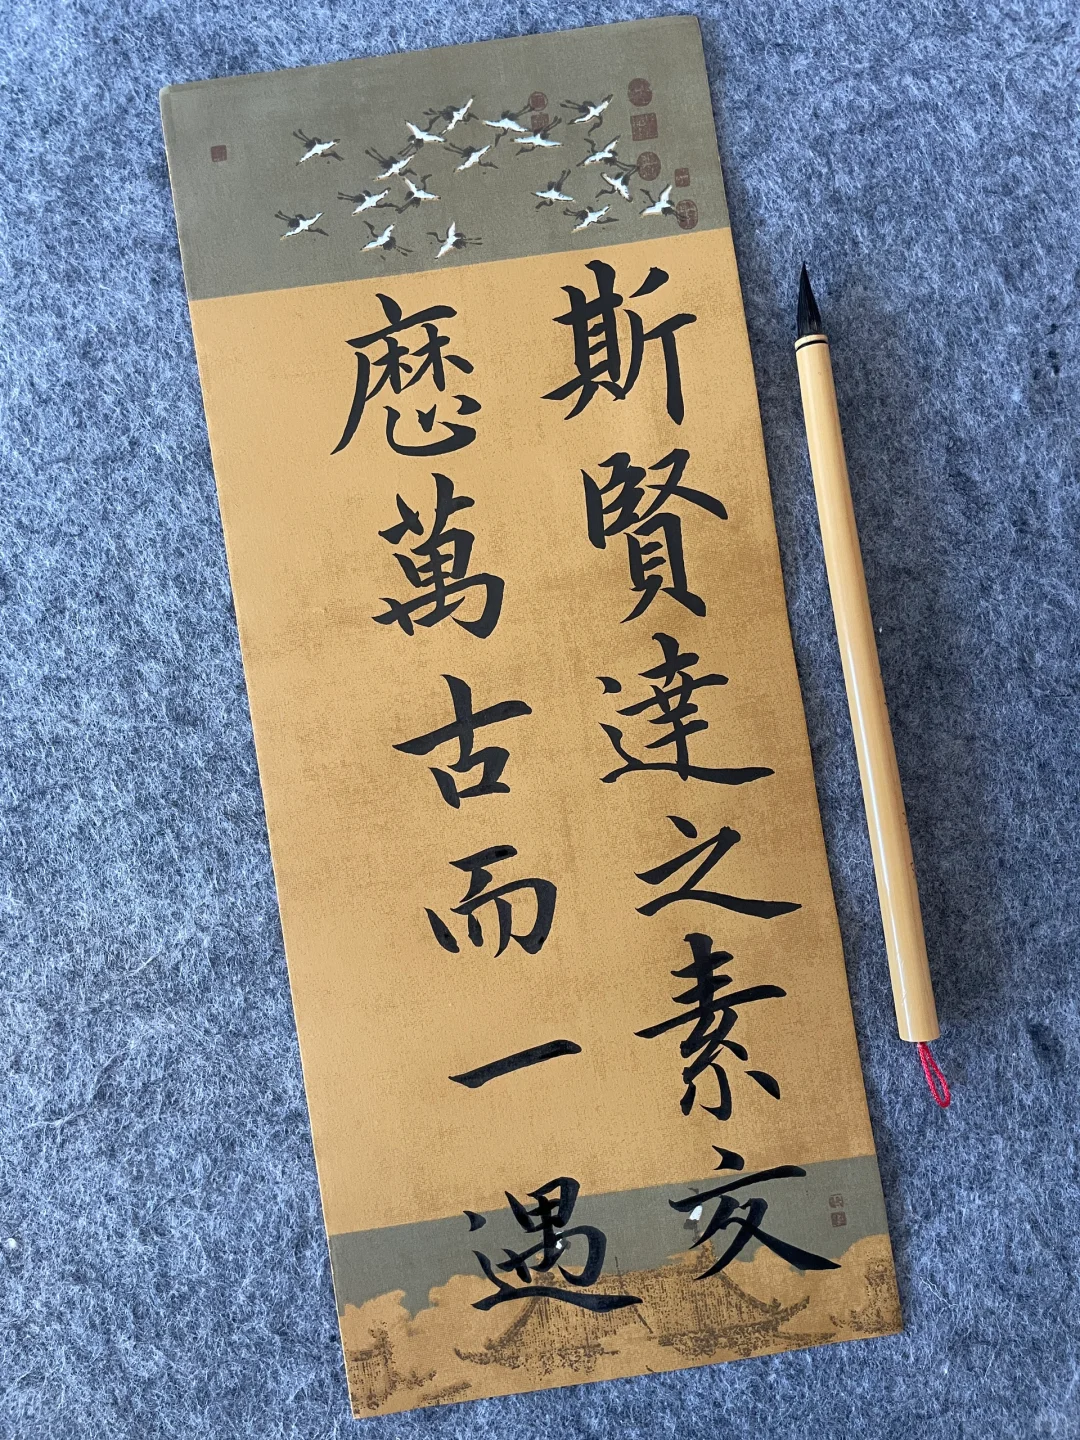 斯賢達之素交
歷萬古而一遇